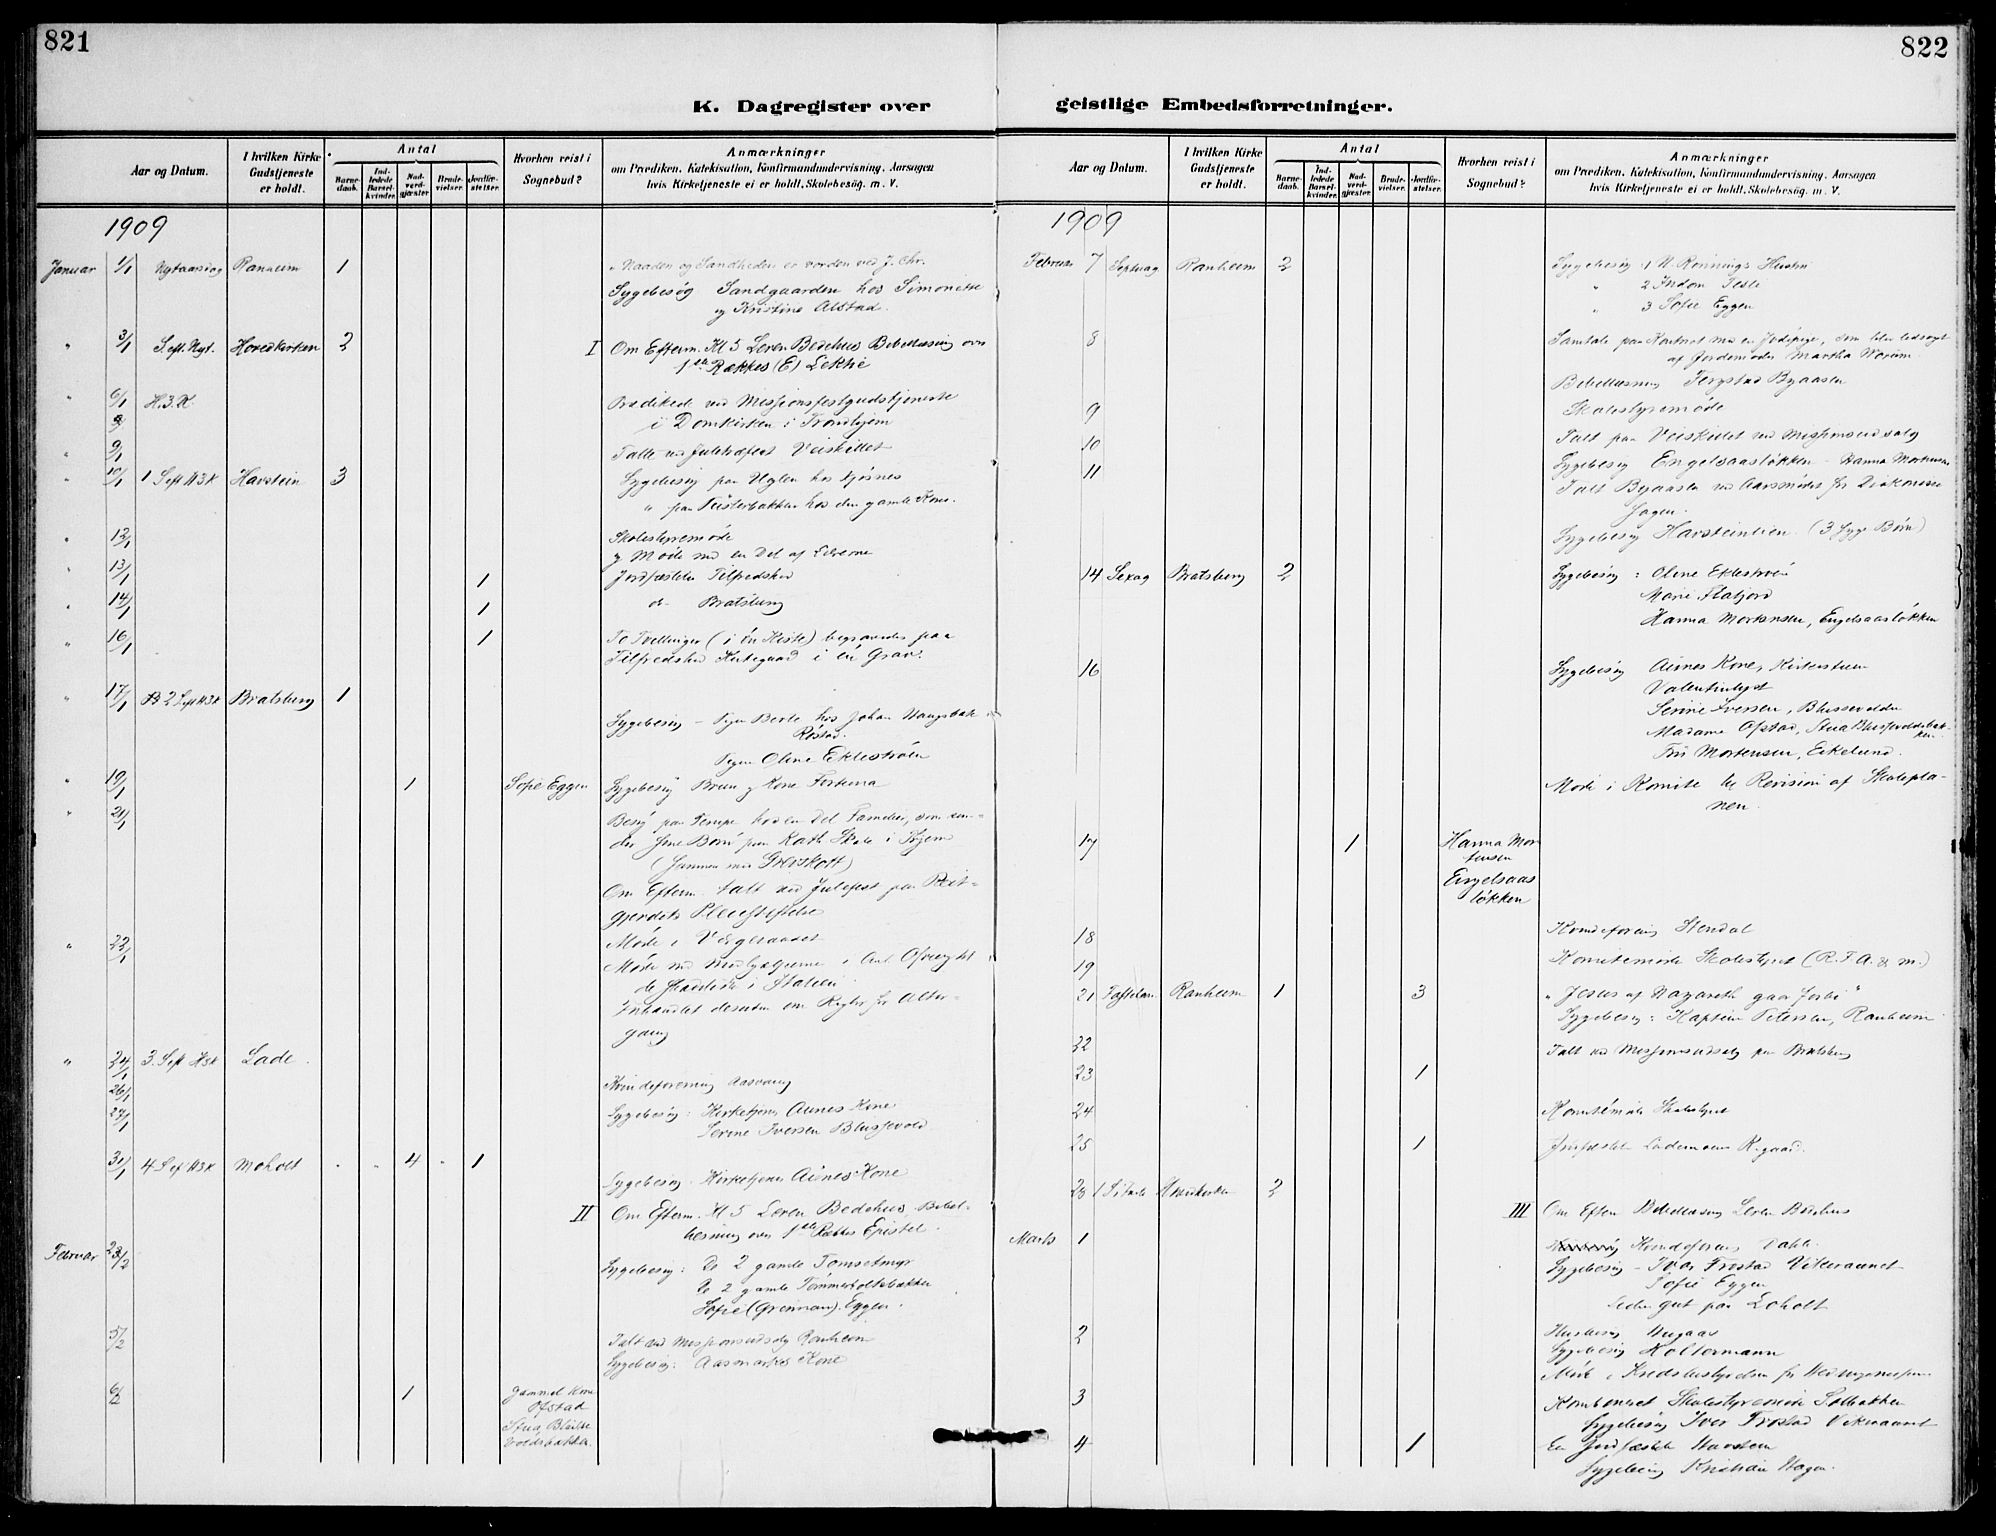 821
K. Dagregister over
Aar og Datum.
I hvilken Kirke Gudstjeneste er holdt.
Antal
Barne-daab.
Ind-ledede Barsel-kvinder.
Nad-verd-gjæster.
Brude-vielser.
Jordfæ-stelser.
Hvorhen reist i Sognebud?
Anmærkninger
om Prædiken, Katekisation, Konfirmandundervisning, Aarsagen
hvis Kirketjeneste ei er holdt, Skolebesög, m. V.
1909
Januar 1/1 Nytaarsdag Ranheim 1 "Naaden og Sandheden er vorden ved J. Chr.
Sygebesøg Sandgaarden hos Simonette
og Kristine Alstad.
" 3/1 S. eft. Nyt. Hovedkirken 2 I Om Efterm. Kl 5 Leren Bedehus Bibellæsning over
1ste Rækkes (E) Lektie
" 6/1 H.3.K. Prædikede ved Missionsfestgudstjeneste
i Domkirken i Trondhjem
" 9/1 Talte ved Juletræfest Veiskillet
" 10/1 1 Sept H3K Havstein 3 Sygebesøg paa Uglen hos Kjøsnes
" paa hos den gamle Kone.
" 12/1 Skolestyremøde
og Møde med en Del af Lærerne
" 13/1 1 Jordfæstelse Tilfredshed
" 14/1 1 do Bratsberg
" 16/1 1 To Tvillinger (i én Kiste) begravedes paa
Tilfredshed Kirkegaard i én Grav.
" 17/1 2 Sept H3K Bratsberg 1
Sygebesøg – Pigen Berte hos Johan
Røstad.
Pigen Oline Eklestrøen
" 19/1 1 Sofie Eggen Sygebesøg Bruun og Kone
" 21/1 Besøg paa Tempe hos en Del Familier, som sen-
der sine Børn paa Kath. Skole i Thjem
(Sammen med )
Om Efterm. talt ved Julefest paa Reit-
gjerdets Pleiestiftelse
" 22/1 Møde i Vergeraadet
Møde med Medhjælperne i Anl.
de i Italien
Forhandlet desuden om Regler for Alter-
gang
" 24/1 3. Sept H3K Lade
26/1 Kvindeforening Aasvang
27/1 Sygebesøg: Kirketjener Aunes Kone
Serine Iversen Blussevold
31/1 4 Sep H3K Moholt " " 4 " 1
Sygebesøg. Kirketjener Aunes Kone
II Om Efterm. Kl 5 Leren Bedehus, Bibel-
læsning over 1ste Rækkes Epistel.
Februar Sygebesøg: De 2 gamle Tomsetmyr
De 2 gamle Tømmerholtsbakken
Sofie (Grennan) Eggen.
5/2 Talt ved Missionsudsalg Ranheim
Sygebesøg: Aasmarkes Kone
6/2 1 Gammel Kone
Ofstad
Stua, Blusse
voldsbakken.
822
geistlige Embedsforretninger.
Aar og Datum.
I hvilken Kirke Gudstjeneste er holdt.
Antal
Barne-daab.
Ind-ledede Barsel-kvinder.
Nad-verd-gjæster.
Brude-vielser.
Jordfæ-stelser.
Hvorhen reist i Sognebud?
Anmærkninger
om Prædiken, Katekisation, Konfirmandundervisning, Aarsagen
hvis Kirketjeneste ei er holdt, Skolebesög, m. V.
1909
Februar 7 Septuag Ranheim 2 Sygebesøg: 1 N. Rønnings Hustru
" 2
" 3 Sofie Eggen
8 Samtale paa Kontoret med en Jødepige, som blev ledsaget
af Jordemoder Martha
Bibellæsning Ferstad Byaasen
9 Skolestyremøde
10 Talt paa Veiskillet ved Missionsudsalg
11 Sygebesøg Engelsaasløkken – Hanna Mortensen
Talt Byaasen ved Aarsmødet for Diakonisse
Sagen.
Sygebesøg Havsteinlien (3 syge Børn)
14 Sexag Bratsberg 2 Sygebesøg: Oline Eklestrøen
Marie Flatjord
Hanna Mortensen, Engelsaasløkken
16 Sygebesøg Aunes Kone,
Valentinlyst
Serine Iversen, Blussevolden
Madame Ofstad, Stua Blussevoldsbak-
ken.
Fru Mortensen, Eikelund.
Møde i Komite for Revision af Skolepla-
nen.
17 1 Hanna Mor
tensen
Engelsaas
løkken
18 Kvindeforening Stendal
19 Komitemøde Skolestyret (R.T.A. & m.)
21 Fastelav. Ranheim 1 3 "Jesus af Nazareth gaar forbi"
Sygebesøg: Kaptein Petersen, Ranheim
22 Talt ved Missionsudsalg paa Bratsberg
23 1
24 Komitémøde Skolestyret
25 1 Jordfæstelse Lademoens K.gaard.
28 1 S i Faste Hovedkirken 2
III Om Eftm Bibellæsning Leren Bedehus
Marts 1 Kvindeforening Dahle.
Sygebesøg – Ivar Frostad Vikeraunet
Sofie Eggen
liden gut paa Loholt
2 Husbesøg
Sygebesøg Holtermann
Møde i Kredsbestyrelsen for
3 Kombineret Skolestyremøde Solbakken
Sygebesøg Iver Frostad Vikeraunet
4 1 En Jordfæstelse Havstein
Sygebesøg Kristian Hagen.